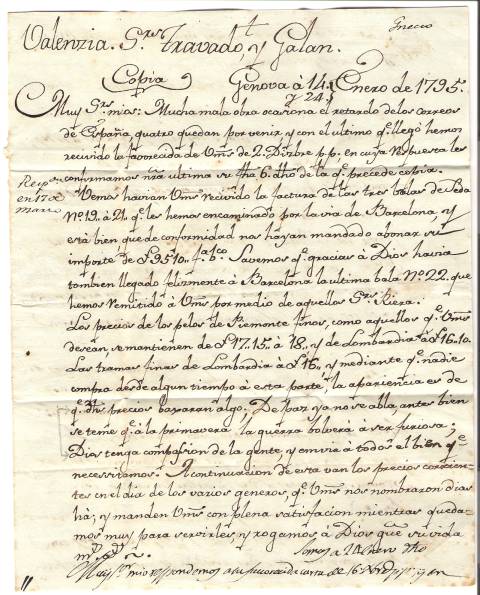 Valenzia. S.res Travado y Galan.
Copia
Genova à 14 Enero de 1795.
y 24
Muy S.res mios: Mucha mala obra ocasiona el retardo de los correos
de España, quatro quedan por venir, y con el ultimo q.e llegó hemos
recivido la favorecida de Vms de 2. Dizbre p.p. en cuya respuesta les
confirmamos nra ultima su fha 6. dho de la q.e precede copia.
Resp.
en 17 de
Marzo
Vemos havian Vms recivido la factura de las tres balas de Seda
N.o 19. à 21. q.e les hemos encaminado por la via de Barcelona, y
està bien que de conformidad nos hayan mandado abonar su
importe de Savemos q.e gracias à Dios havia
tambien llegado felizmente à Barcelona la ultima bala N.o 22. que
hemos remitido à Vms por medio de aquellos S.res Riera.
Los precios de los pelos de Piemonte finos, como aquellos q.e Vms
desean, se mantienen de 17.15. à 18. y de Lombardia à 16.10.
Las tramas finas de Lombardia à 16.. y mediante q.e nadie
compra desde algun tiempo à esta parte, la apariencia es de
q.e dhos precios baxaran algo. De paz ya no se abla, antes bien
se teme q.e à la primavera la guerra bolverà à ser furiosa;
Dios tenga compasion de la gente, y envie à todos el bien q.e
necessitamos. A continuacion de esta van los precios corrien-
tes en el dia de los varios generos, q.e Vms nos nombraron dias
hà; y manden Vms con plena satisfacion mientras queda-
mos muy para servirles, y rogamos à Dios que su vida
m.s a.s Somos à 24 Enero dho
Muy S.res mios respondemos a su favorecida carta de 16